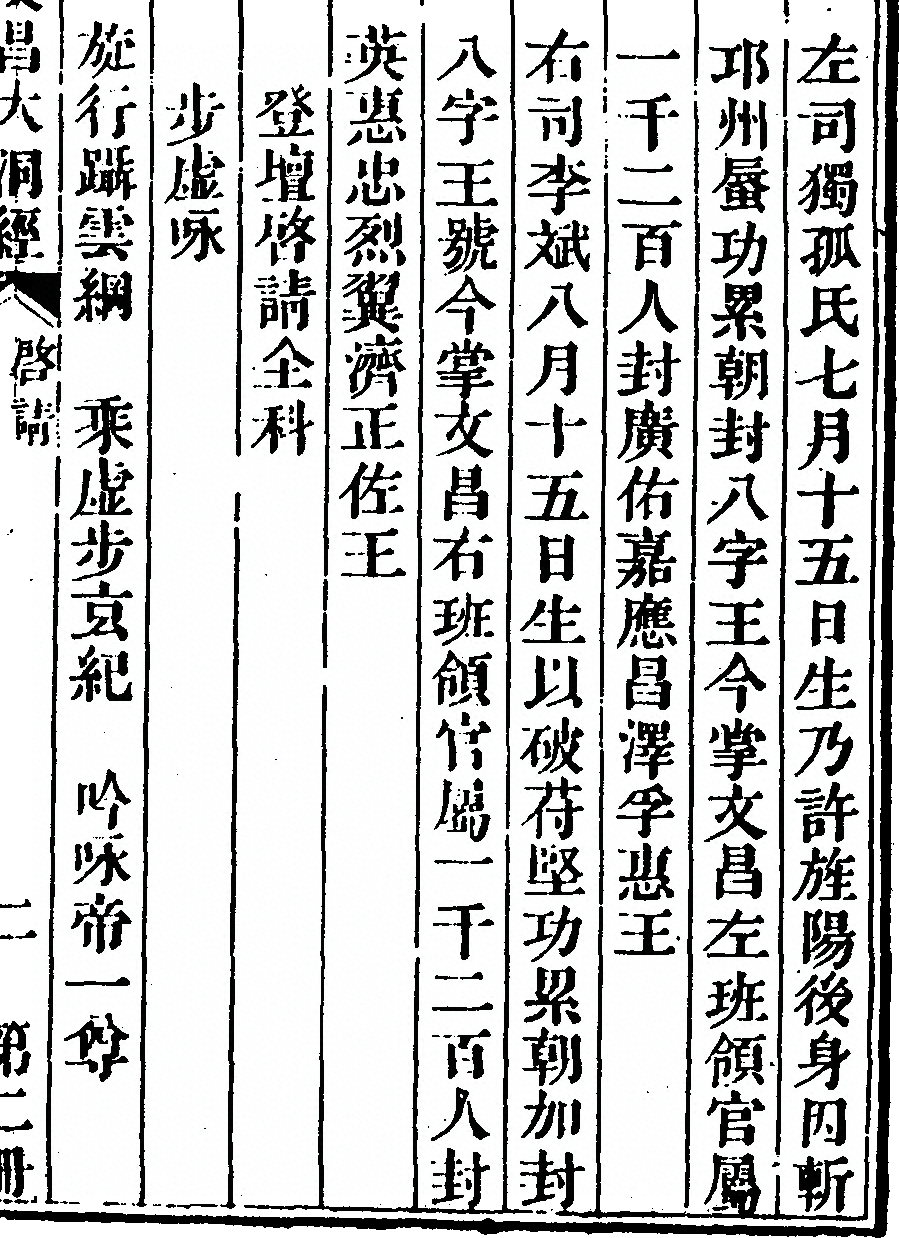 左司獨孤氏七月十五日生乃許旌陽後身因斬
邛州蜃功累朝封八字王今掌文昌左班領官屬
一千二百人封廣佑嘉應昌澤孚惠王
右司李斌八月十五日生以破苻堅功累朝加封
八字王號今掌文昌右班領官屬一千二百人封
英惠忠烈翼濟正佐王
登壇啓請全科
步虛咏
旋行躡雲綱　乘虛步玄紀　吟咏帝一尊
昌大洞經　啓請　二　第二冊